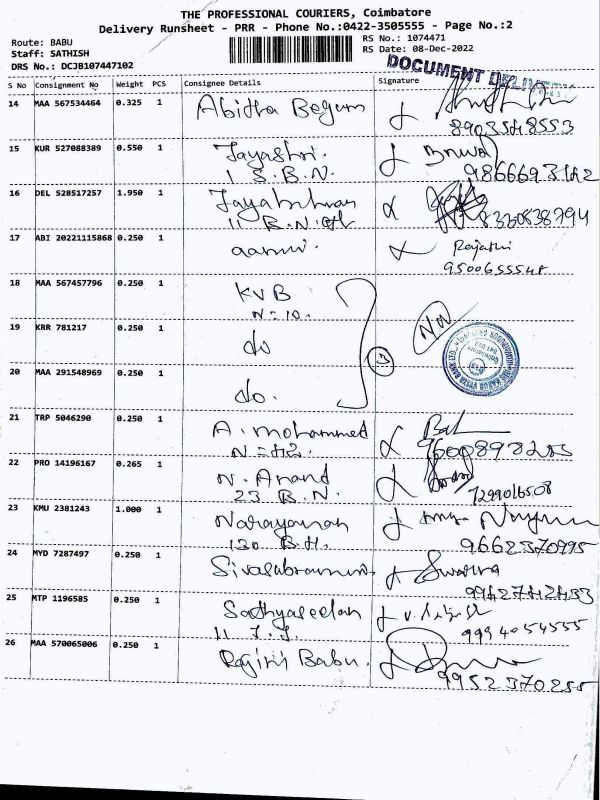 THE PROFESSIONAL COURIERS, Coimbatore
Delivery Runsheet - PRR - Phone No.:0422-3505555 - Page No.:2
Route: BABU
Staff: SATHISH
DRS No.: DCJB107447102
RS No.: 1074471
RS Date: 08-Dec-2022
DOCUMENT DELIVERY
S No Consignment No Weight PCS Consignee Details Signature
14 MAA 567534464 0.325 1 Abitha Begum
8903548553
15 KUR 527088389 0.550 1 Jayashri.
1 S.B.N.
16 DEL 528517257 1.950 1
8330838794
17 ABI 20221115868 0.250 1
9500655548
18 MAA 567457796 0.250 1 KVB
N=10.
19 KRR 781217 0.250 1 do
20 MAA 291548969 0.250 1 do.
3
21 TRP 5046290 0.250 1 A. mohammed
22 PRO 14196167 0.265 1 N. Anand
23 B.N. 7299016508
23 KMU 2381243 1.000 1 Narayanan
130 B.H. 9662370995
24 MYD 7287497 0.250 1
9942742433
25 MTP 1196585 0.250 1 Sathyaseelan
11 J.J. 9994054555
26 MAA 570065006 0.250 1 Rajini Babu.
9952370255